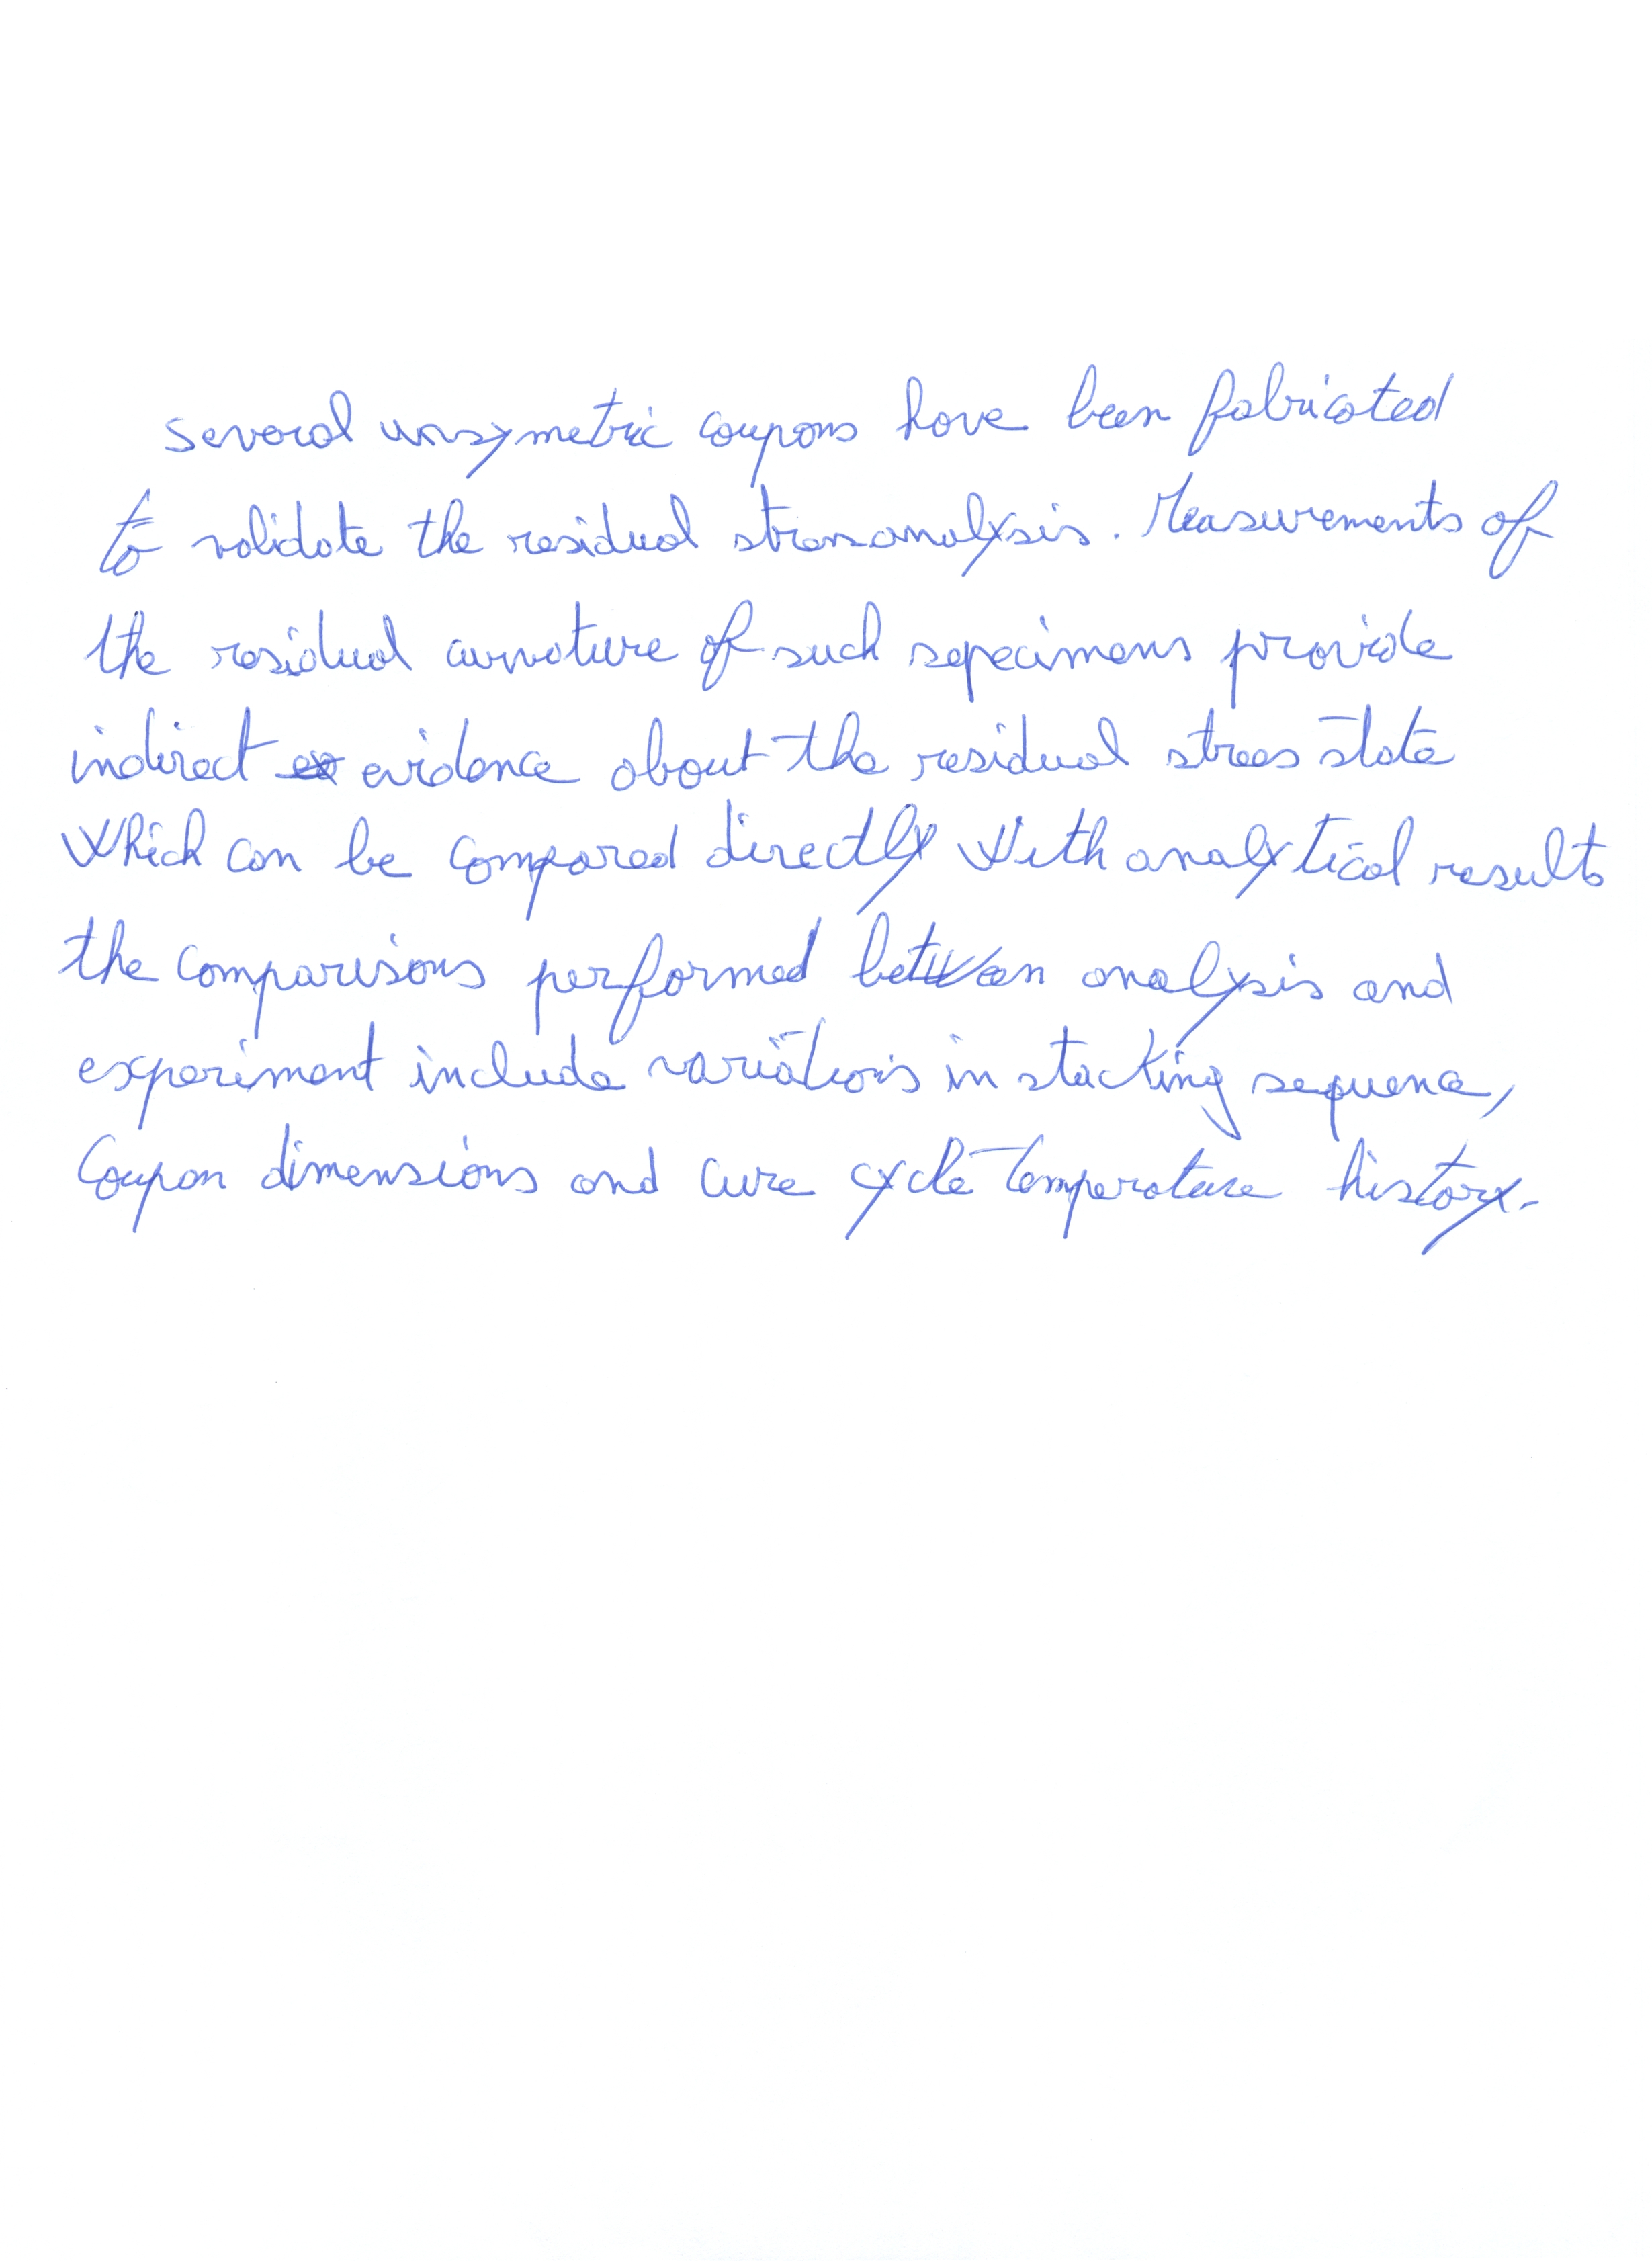 Several unsymetric coupons have been fabricated
to validate the residual stress analysis. Measurements of
the residual curvature of such sepecimens provide
indirect evidence about the residual stress state
which can be compared directly with analytical results
the comparisons performed between analysis and
experiment include variations in stacking sequence,
Coupon dimensions and cure cycle temperature history.